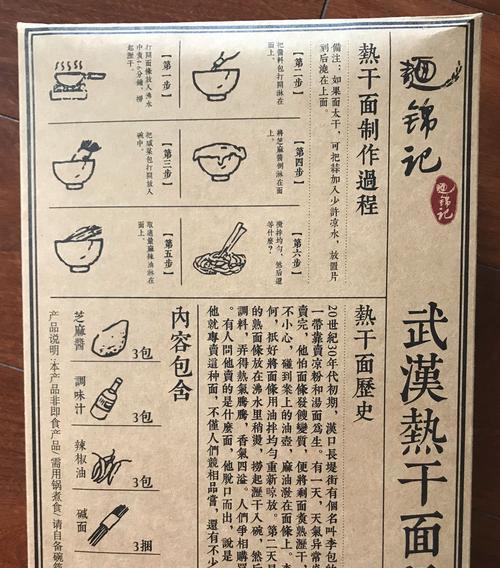 麵锦记
麵锦记
武漢熱干面
熱干面制作過程
備注：如果面太干，可把蒜加入少許凉水，放置片
到后澆在上面。
【第一步】
打開面條放入沸水
中煮4-6分鐘，撈
起瀝干。
【第二步】
把醬料包打開淋在
面上。
【第三步】
把咸菜包打開放入
碗中。
【第四步】
將芝麻醬倒淋在面
上。
【第五步】
取適量麻辣油淋在
面上。
【第六步】
攪拌均勻，然后還
等什麼？
熱干面歷史
20世紀30年代初期，漢口長堤街有個名叫李包的
一帶靠賣凉粉和湯面為生。有一天，天氣异常
賣完，他怕面條發餿變質，便將剩面煮熟瀝干，
不小心，碰到案上的油壺，麻油潑在面條上。
何，抵好將面條用油拌均勻重新晾放。第二天
的熟面條放在沸水里稍燙，撈起瀝干入碗，然后
調料，弄得熱氣騰騰，香氣四溢。人們爭相購
。有人問他賣的是什麼面，他脫口而出，說是
他就專賣這種面，不僅人們競相品嘗，還有不少
內容包含
芝麻醬 3包
調味汁 3包
辣椒油 3包
碱面 3捆
產品说明：本產品非即食產品，需用锅煮食，请自备碗筷